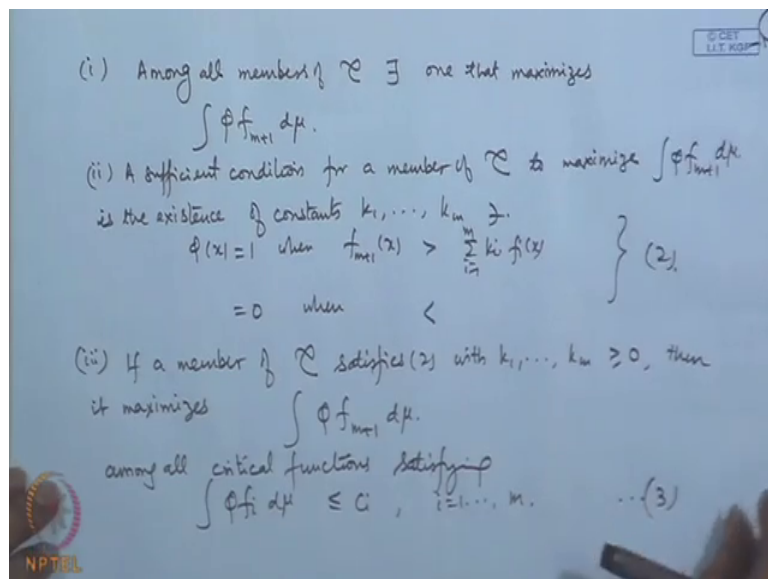 © CET
I.I.T. KGP
(i) Among all members of 𝒞 ∃ one that maximizes
∫ φ f_{m+1} dμ.
(ii) A sufficient condition for a member of 𝒞 to maximize ∫ φ f_{m+1} dμ.
is the existence of constants k_1, ..., k_m ∋.
φ(x) = 1 when f_{m+1}(x) > Σ_{i=1}^{m} k_i f_i(x)
} (2).
= 0 when <
(iii) If a member of 𝒞 satisfies (2) with k_1, ..., k_m ≥ 0, then
it maximizes ∫ φ f_{m+1} dμ.
among all critical functions satisfying
∫ φ f_i dμ ≤ c_i, i=1..., m. ...(3)
NPTEL